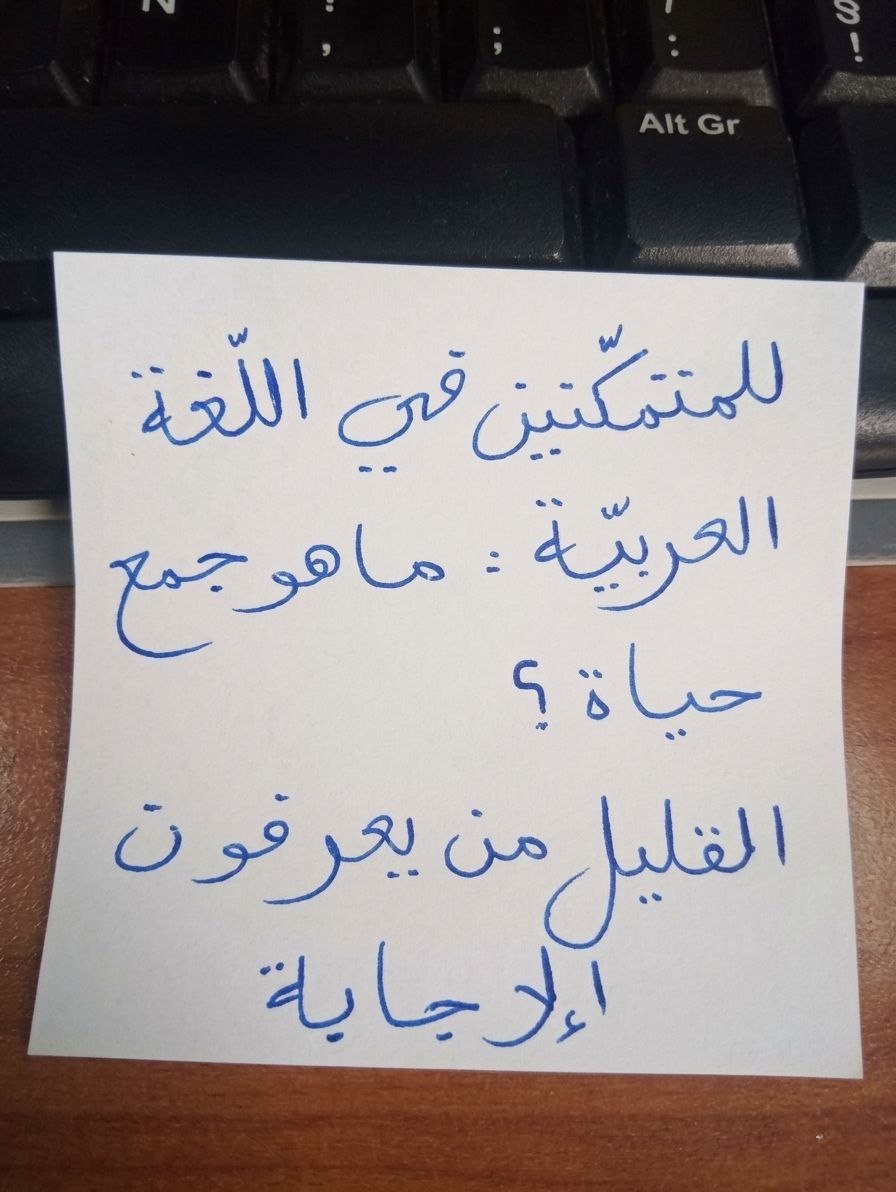 N ? , . ; / : § !
Alt Gr
للمتمكّنين في اللّغة
العربيّة : ما هو جمع
حياة ؟
القليل من يعرفون
الإجابة